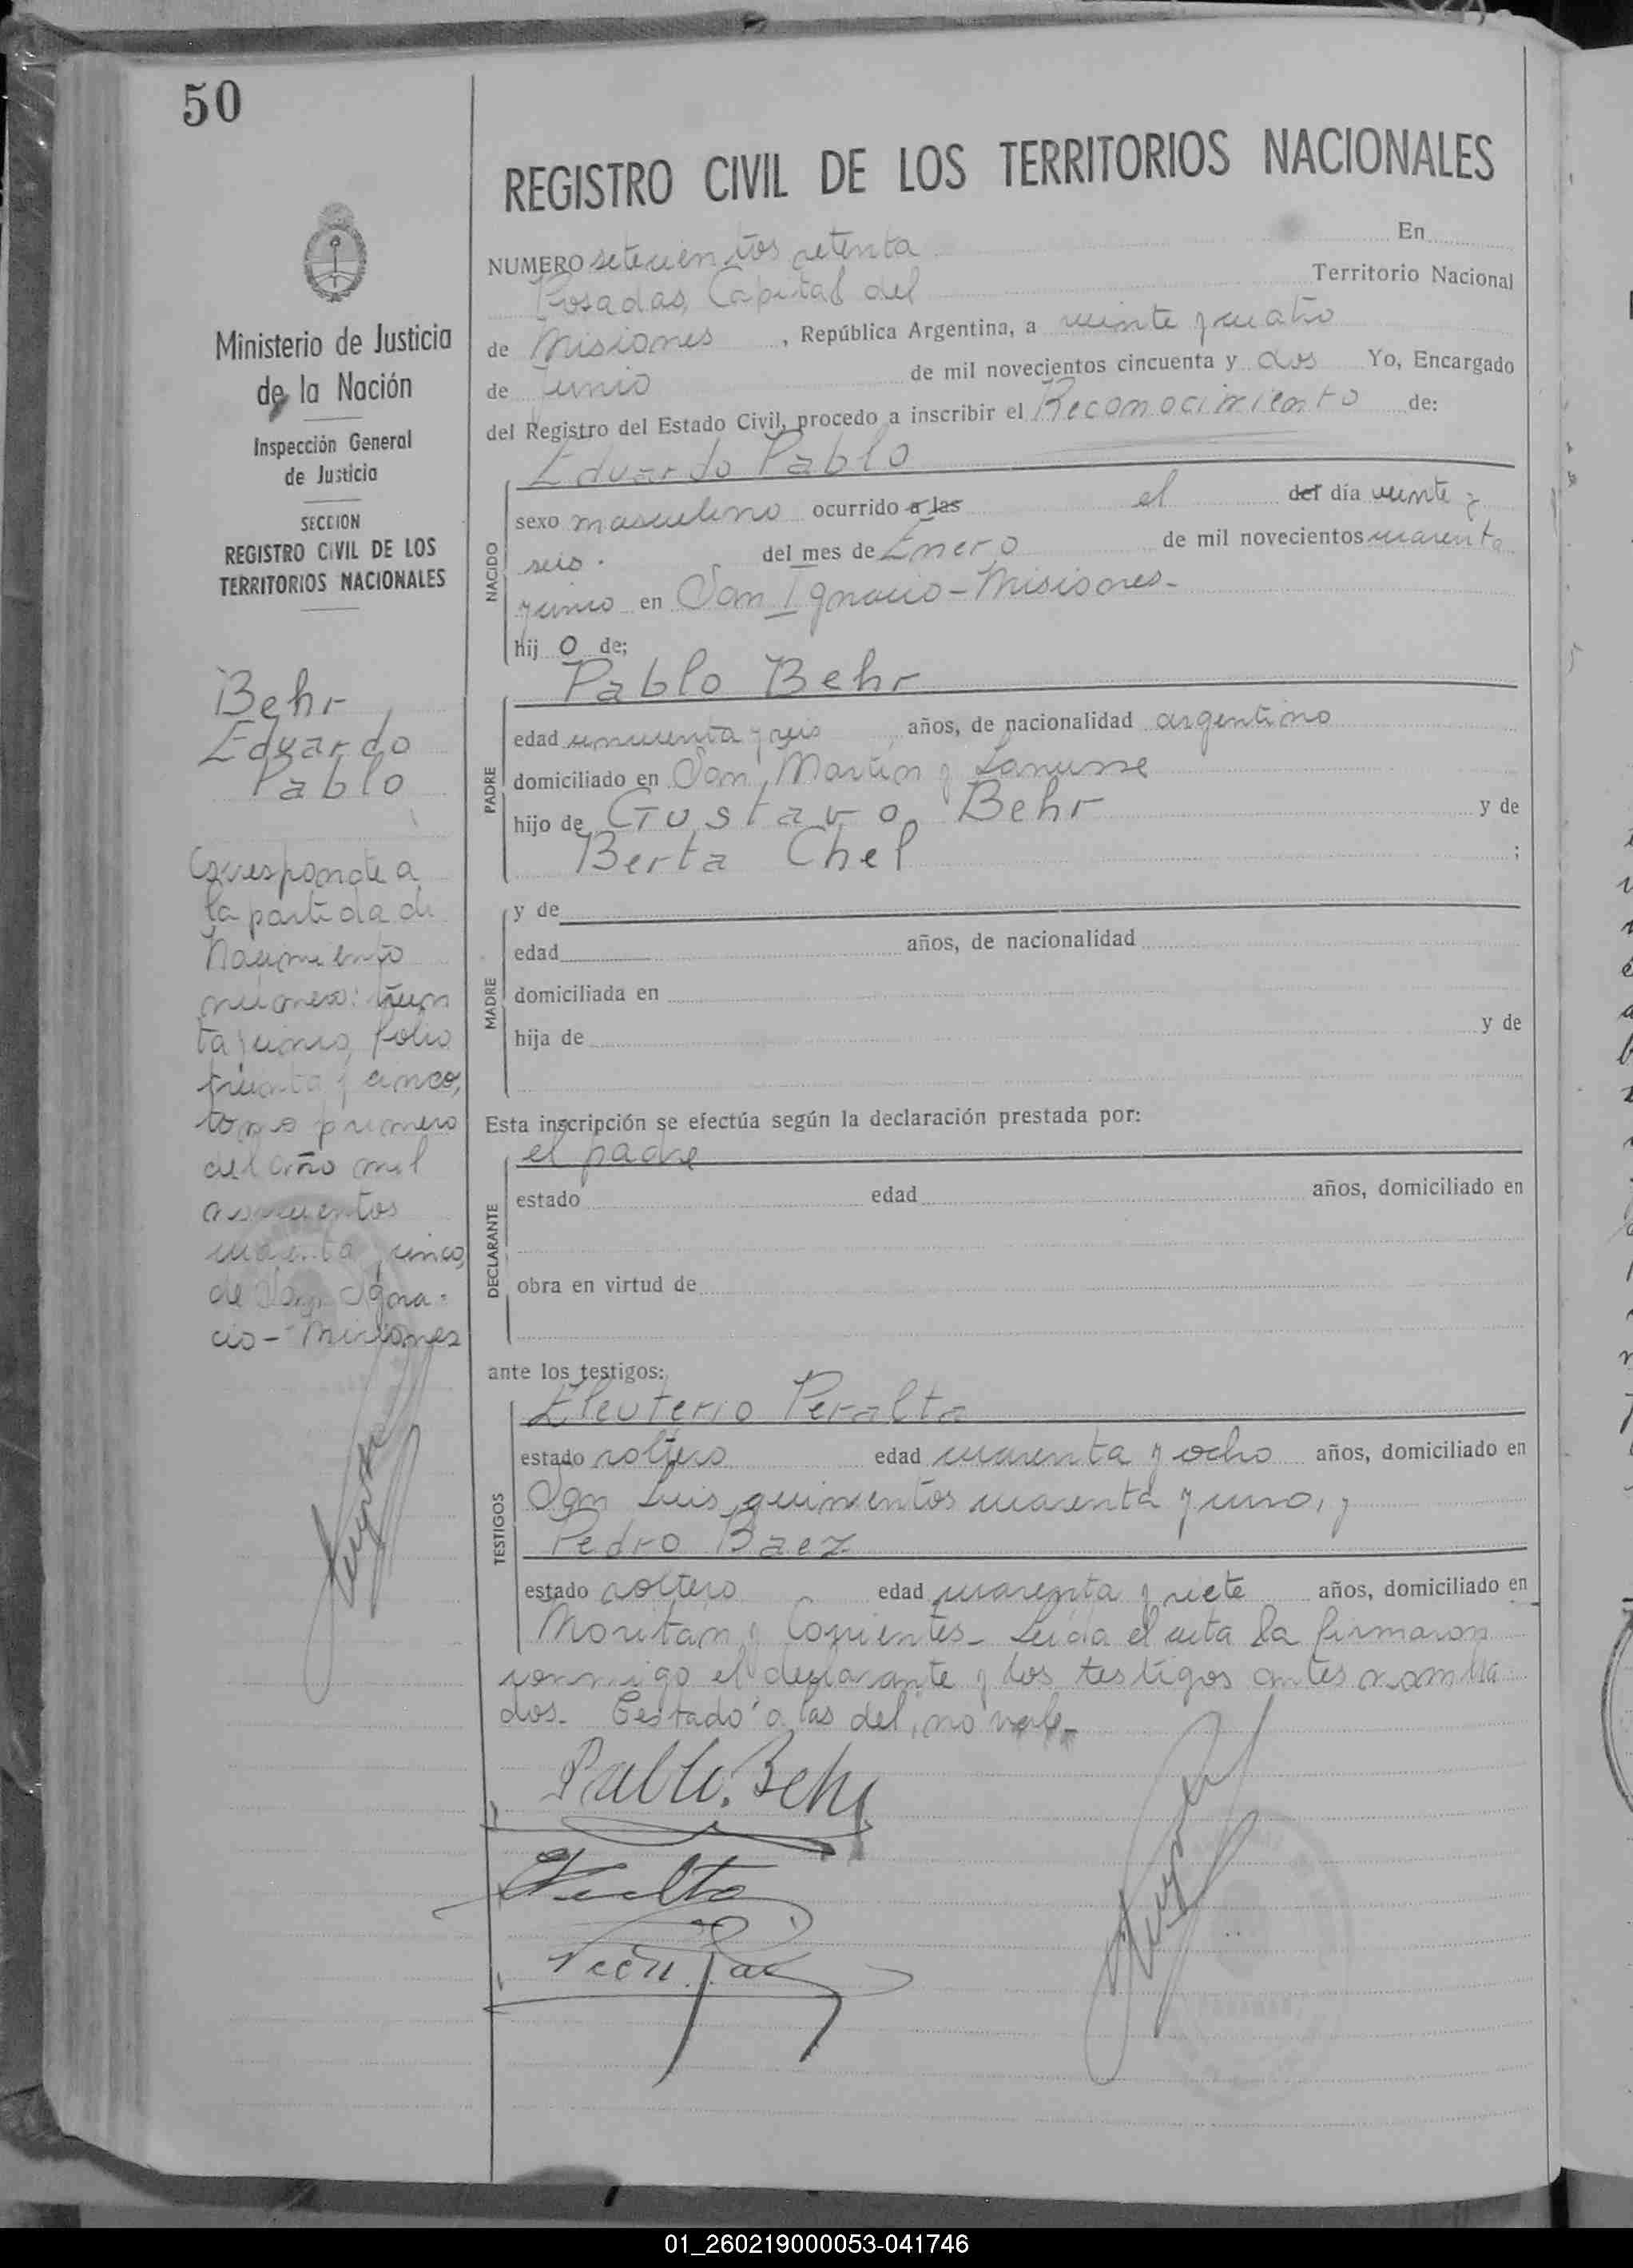 50
REGISTRO CIVIL DE LOS TERRITORIOS NACIONALES
NUMERO setecientos setenta En
Posadas, Capital del Territorio Nacional
de Misiones, República Argentina, a veinte y cuatro
de Junio de mil novecientos cincuenta y dos Yo, Encargado
del Registro del Estado Civil, procedo a inscribir el Reconocimiento de:
Eduardo Pablo
NACIDO
sexo masculino ocurrido a las el del día veinte y
seis. del mes de Enero de mil novecientos cuarenta
y cinco en San Ignacio - Misiones -
hij o de;
Pablo Behr
PADRE
edad cincuenta y seis años, de nacionalidad argentino
domiciliado en San Martin y Lanusse
hijo de Gustavo Behr y de
Berta Chel ;
MADRE
y de
edad años, de nacionalidad
domiciliada en
hija de y de
Esta inscripción se efectúa según la declaración prestada por:
el padre
DECLARANTE
estado edad años, domiciliado en
obra en virtud de
ante los testigos:
Eleuterio Peralta
TESTIGOS
estado soltero edad cuarenta y ocho años, domiciliado en
San Luis quinientos cuarenta y uno, y
Pedro Baez
estado soltero edad cuarenta y siete años, domiciliado en
Moritan y Corrientes - Leida el acta la firmaron
conmigo el declarante y los testigos antes nombra
dos - Testado a las del, no vale -
Pablo Behr
Ministerio de Justicia
de la Nación
Inspección General
de Justicia
SECCION
REGISTRO CIVIL DE LOS
TERRITORIOS NACIONALES
Behr
Eduardo
Pablo
Corresponde a
la partida de
Nacimiento
número: trein
ta y cinco, folio
treinta y cinco,
tomo primero
del año mil
novecientos
cuarenta y cinco,
de San Igna-
cio - Misiones
01_260219000053-041746